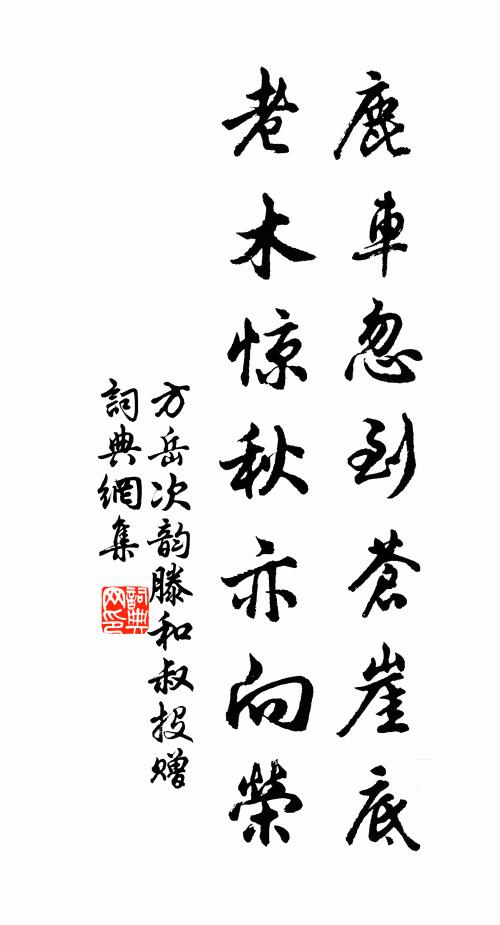 鹿車忽到蒼崖底
老木惊秋亦向榮
方岳次韵滕和叔投赠
詞典網集
詞典
网印